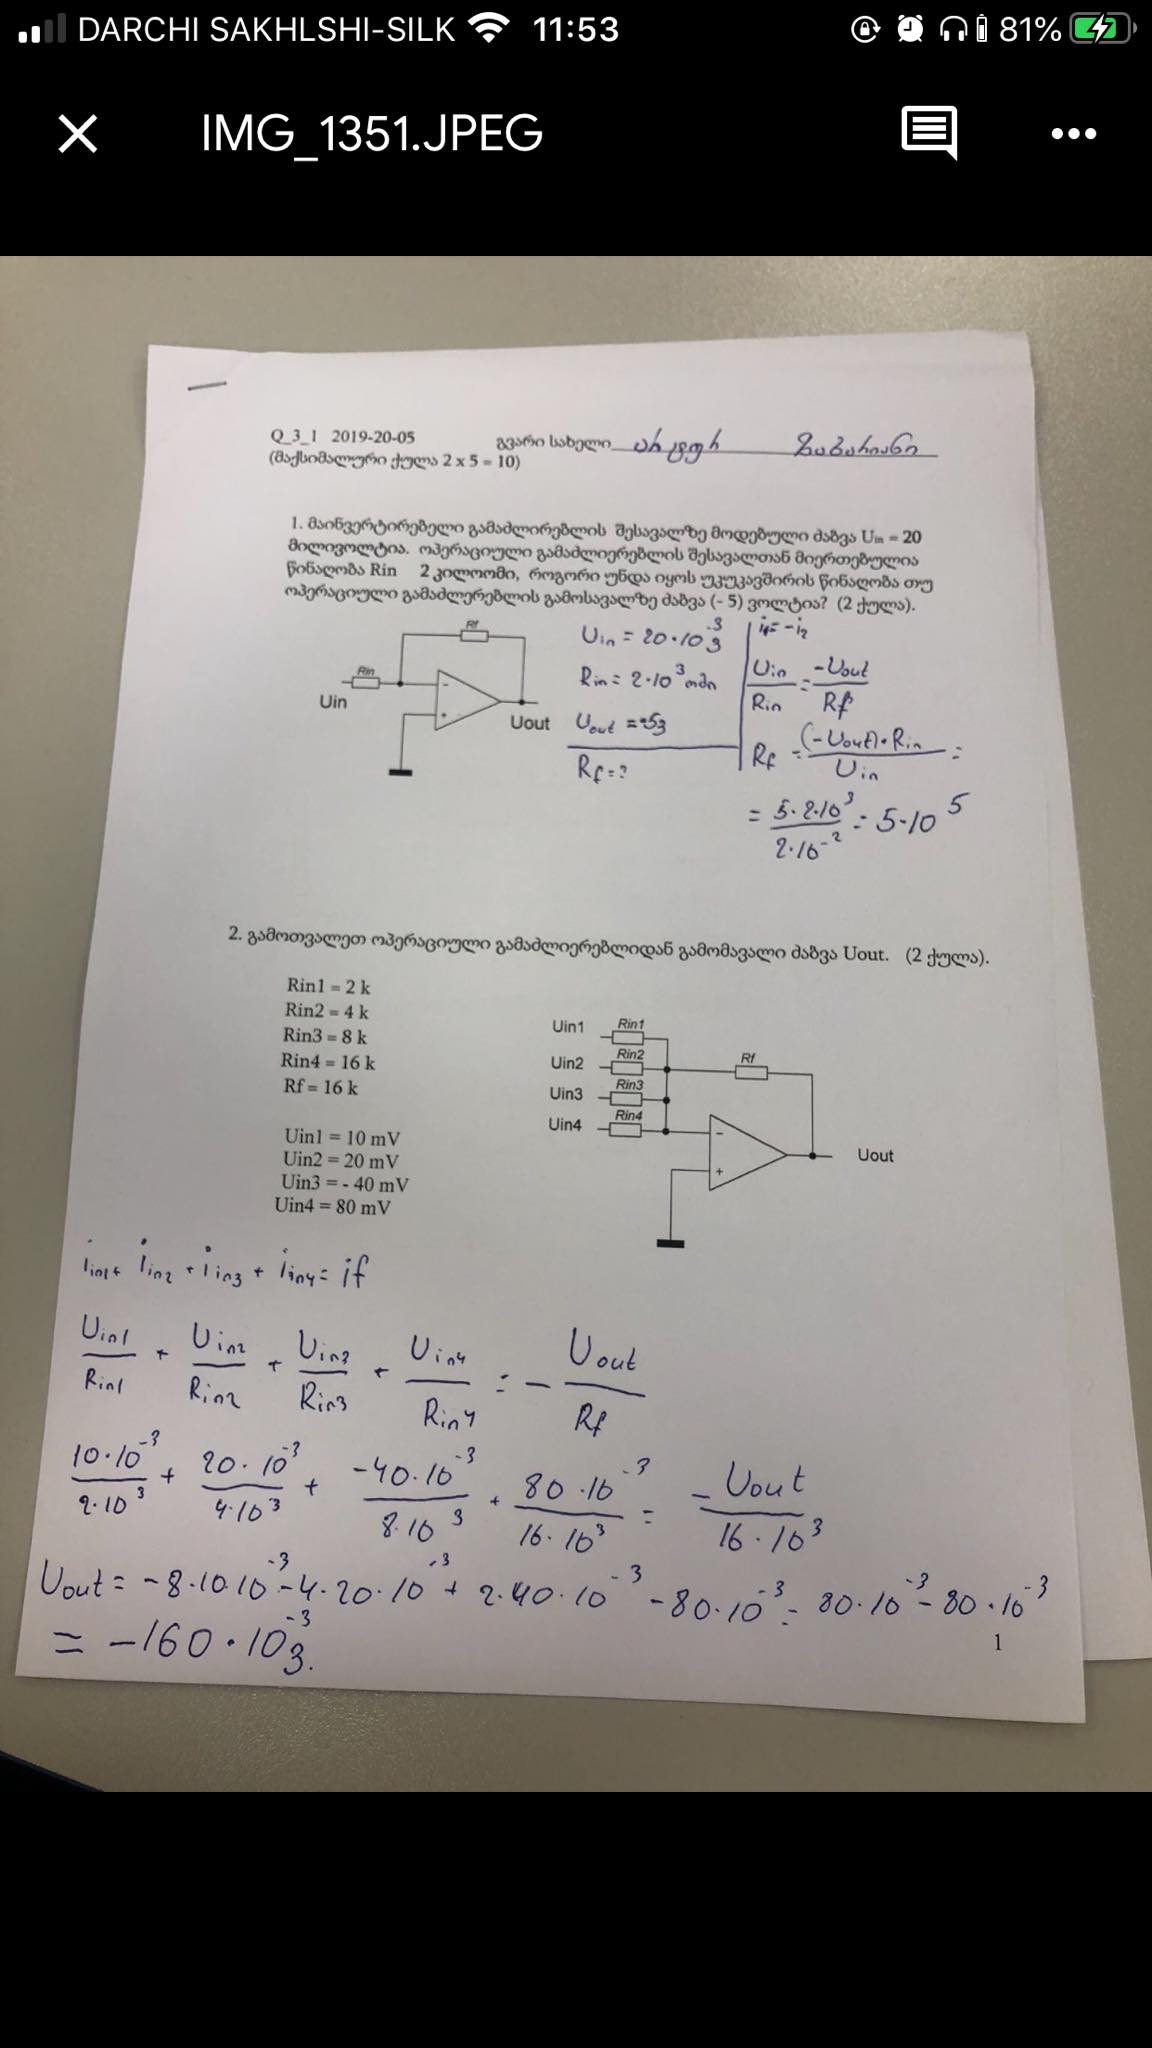 DARCHI SAKHLSHI-SILK 11:53 81%
IMG_1351.JPEG
Q_3_1 2019-20-05 გვარი სახელი
(მაქსიმალური ქულა 2 x 5 = 10)
1. მაინვერტირებელი გამაძლირებლის შესავალზე მოდებული ძაბვა Uin = 20
მილივოლტია. ოპერაციული გამაძლიერებლის შესავალთან მიერთებულია
წინაღობა Rin 2 კილოომი, როგორი უნდა იყოს უკუკავშირის წინაღობა თუ
ოპერაციული გამაძლერებლის გამოსავალზე ძაბვა (- 5) ვოლტია? (2 ქულა).
Rf
Rin
Uin
-
+
Uout
Uin = 20·10⁻³ ვ
Rin = 2·10³ ომი
Uout = -5ვ
Rf = ?
i1 = -i2
Uin/Rin = -Uout/Rf
Rf = (-Uout)·Rin/Uin =
= 5·2·10³/2·10⁻² = 5·10⁵
2. გამოთვალეთ ოპერაციული გამაძლიერებლიდან გამომავალი ძაბვა Uout. (2 ქულა).
Rin1 = 2 k
Rin2 = 4 k
Rin3 = 8 k
Rin4 = 16 k
Rf = 16 k
Uin1 = 10 mV
Uin2 = 20 mV
Uin3 = - 40 mV
Uin4 = 80 mV
Uin1 Rin1
Uin2 Rin2 Rf
Uin3 Rin3
Uin4 Rin4
-
+
Uout
iin1 + iin2 + iin3 + iin4 = if
Uin1/Rin1 + Uin2/Rin2 + Uin3/Rin3 + Uin4/Rin4 = - Uout/Rf
10·10⁻³/2·10³ + 20·10⁻³/4·10³ + -40·10⁻³/8·10³ + 80·10⁻³/16·10³ = - Uout/16·10³
Uout = -8·10·10⁻³ - 4·20·10⁻³ + 2·40·10⁻³ - 80·10⁻³ = 80·10⁻³ - 80·10⁻³
= -160·10⁻³ ვ.
1